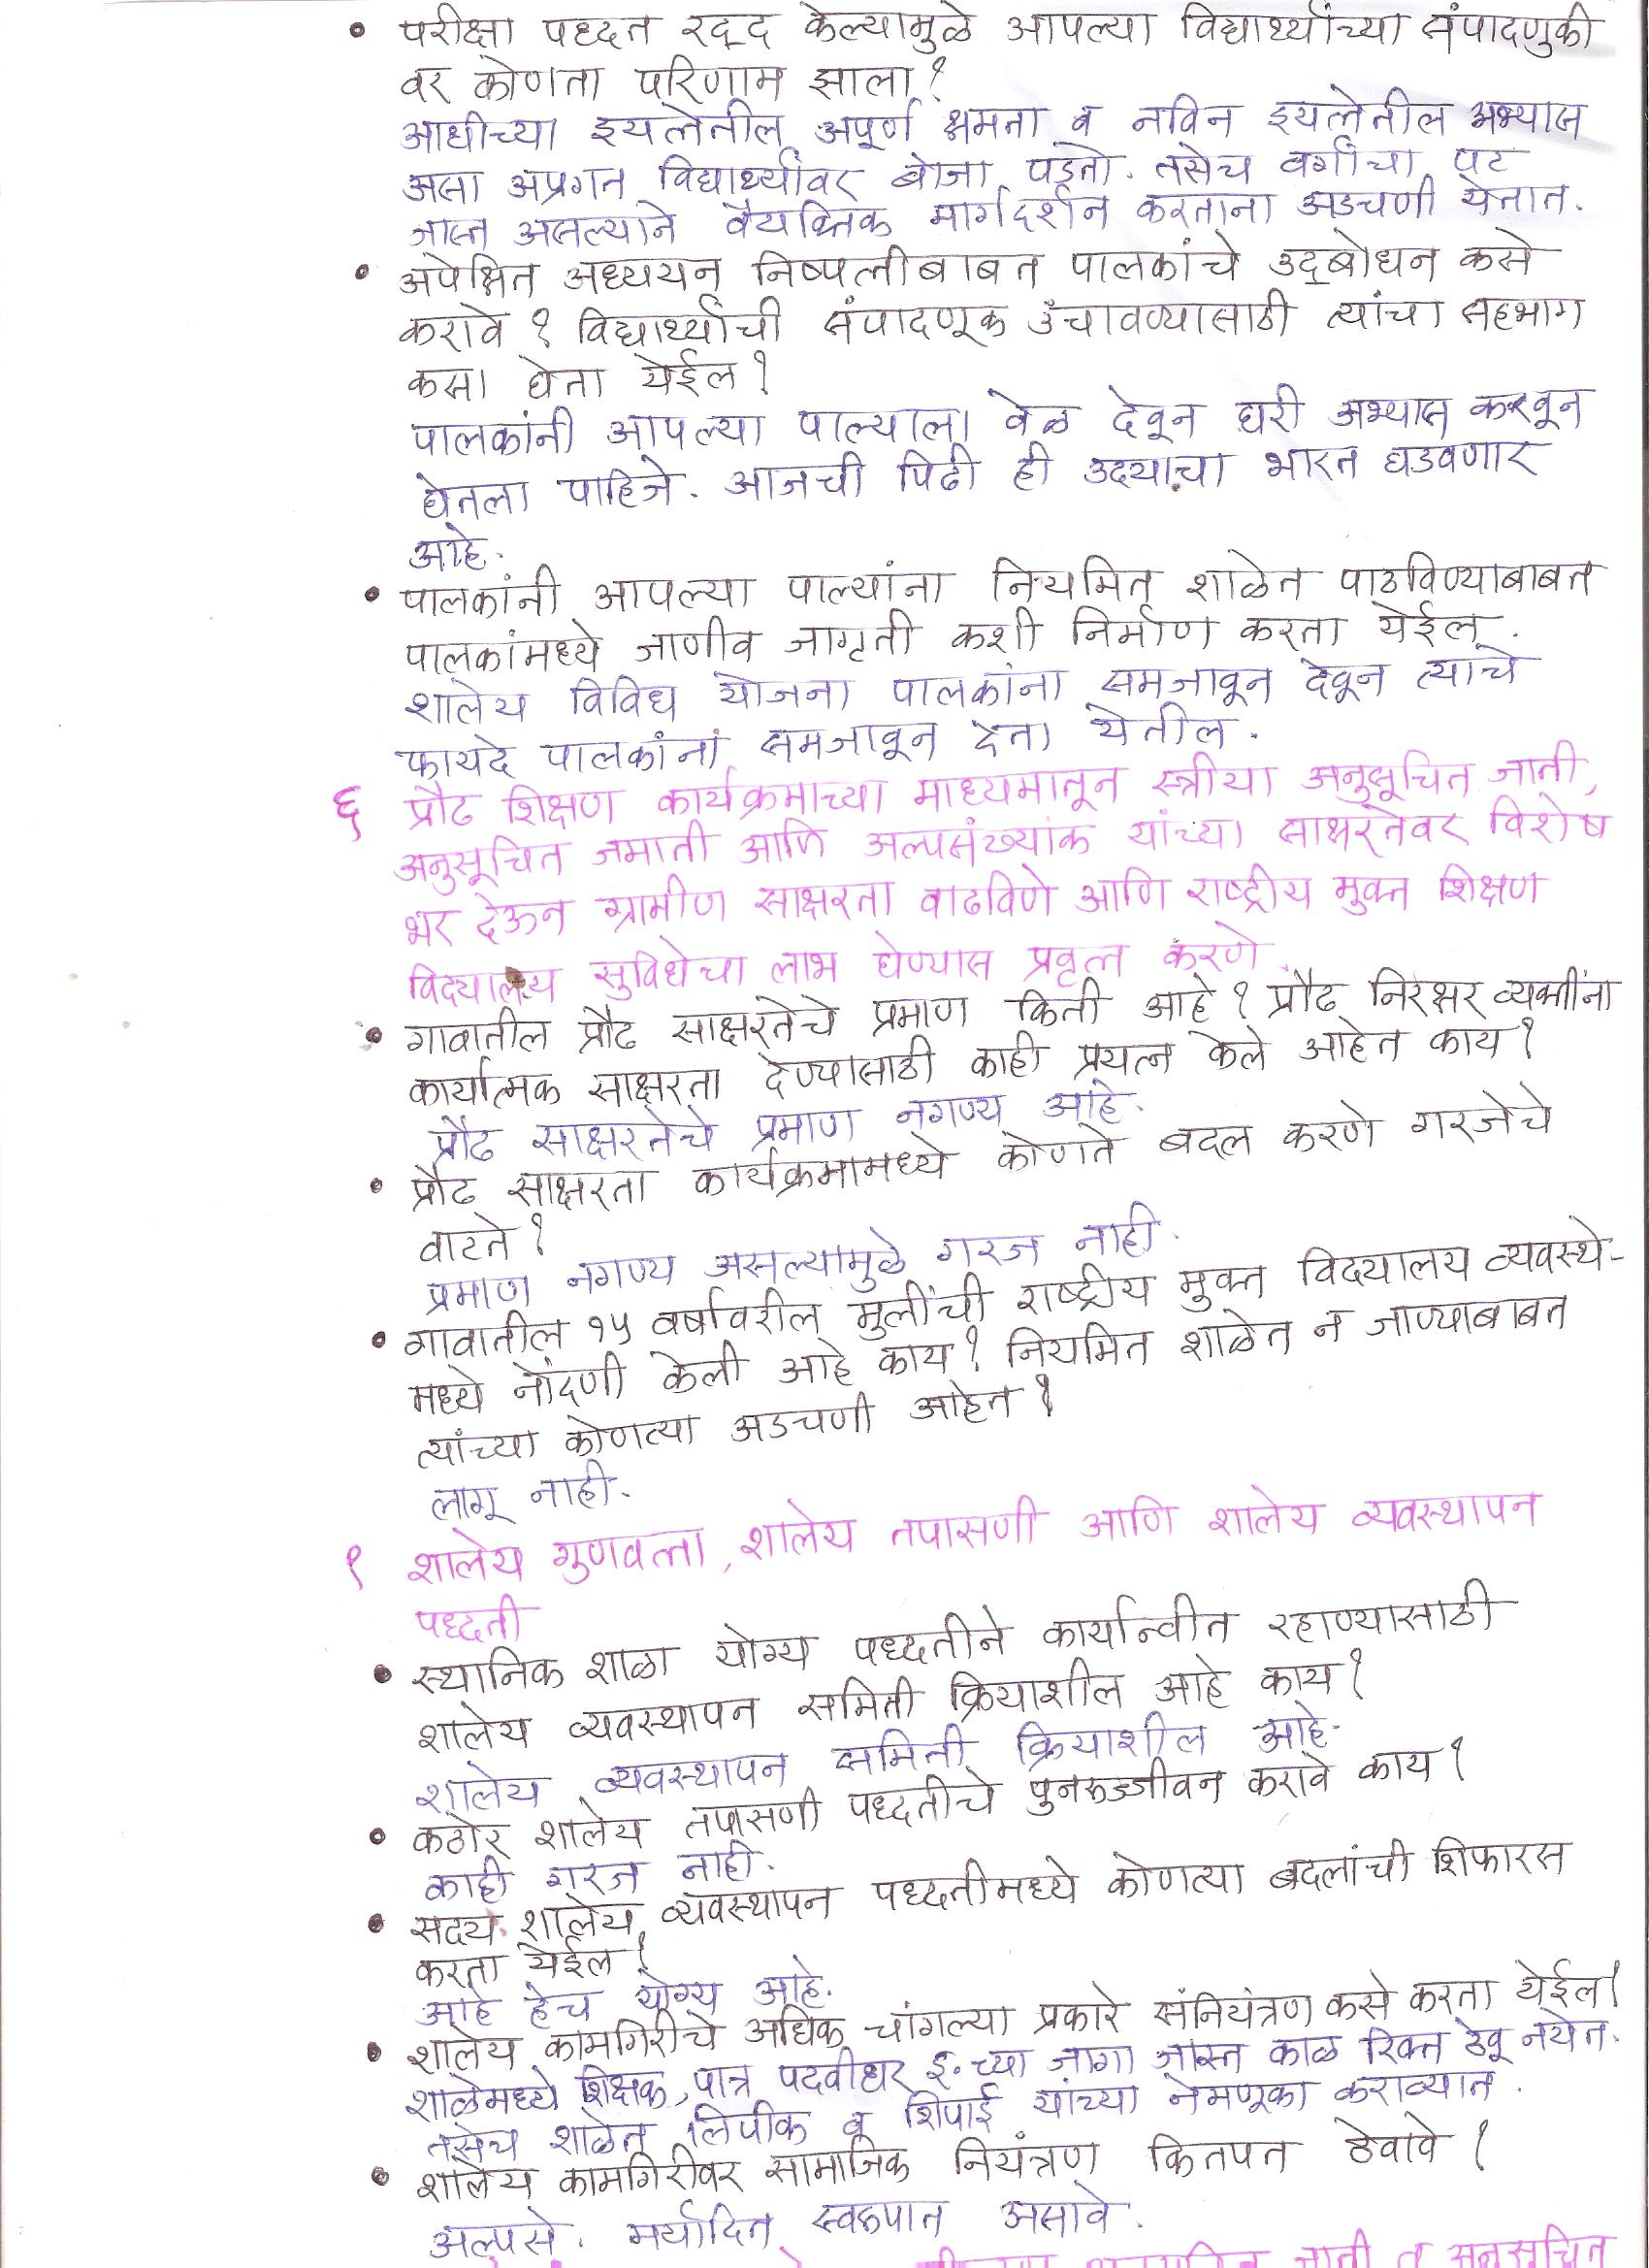 • परीक्षा पध्दत रद्द केल्यामुळे आपल्या विद्यार्थ्यांच्या संपादणुकी
वर कोणता परिणाम झाला?
आधीच्या इयत्तेतील अपूर्ण क्षमता व नविन इयत्तेतील अभ्यास
असा अप्रगत विद्यार्थ्यांवर बोजा पडतो. तसेच वर्गाचा पट
जास्त असल्याने वैयक्तिक मार्गदर्शन करताना अडचणी येतात.
• अपेक्षित अध्ययन निष्पत्तीबाबत पालकांचे उद्बोधन कसे
करावे? विद्यार्थ्यांची संपादणूक उंचावण्यासाठी त्यांचा सहभाग
कसा घेता येईल?
पालकांनी आपल्या पाल्याला वेळ देवून घरी अभ्यास करवून
घेतला पाहिजे. आजची पिढी ही उदयाचा भारत घडवणार
आहे.
• पालकांनी आपल्या पाल्यांना नियमित शाळेत पाठविण्याबाबत
पालकांमध्ये जाणीव जागृती कशी निर्माण करता येईल.
शालेय विविध योजना पालकांना समजावून देवून त्याचे
फायदे पालकांना समजावून देता येतील.
६ प्रौढ शिक्षण कार्यक्रमाच्या माध्यमातून स्त्रीया अनुसूचित जाती,
अनुसूचित जमाती आणि अल्पसंख्यांक यांच्या साक्षरतेवर विशेष
भर देऊन ग्रामीण साक्षरता वाढविणे आणि राष्ट्रीय मुक्त शिक्षण
विदयालय सुविधेचा लाभ घेण्यास प्रवृत्त करणे.
• गावातील प्रौढ साक्षरतेचे प्रमाण किती आहे? प्रौढ निरक्षर व्यक्तींना
कार्यात्मक साक्षरता देण्यासाठी काही प्रयत्न केले आहेत काय?
प्रौढ साक्षरतेचे प्रमाण नगण्य आहे.
• प्रौढ साक्षरता कार्यक्रमामध्ये कोणते बदल करणे गरजेचे
वाटते?
प्रमाण नगण्य असल्यामुळे गरज नाही.
• गावातील १५ वर्षावरील मुलींची राष्ट्रीय मुक्त विदयालय व्यवस्थे-
मध्ये नोंदणी केली आहे काय? नियमित शाळेत न जाण्याबाबत
त्यांच्या कोणत्या अडचणी आहेत?
लागू नाही.
९ शालेय गुणवत्ता, शालेय तपासणी आणि शालेय व्यवस्थापन
पध्दती
• स्थानिक शाळा योग्य पध्दतीने कार्यान्वीत रहाण्यासाठी
शालेय व्यवस्थापन समिती क्रियाशील आहे काय?
शालेय व्यवस्थापन समिती क्रियाशील आहे.
• कठोर शालेय तपासणी पध्दतीचे पुनरुज्जीवन करावे काय?
काही गरज नाही.
• सदय शालेय व्यवस्थापन पध्दतीमध्ये कोणत्या बदलांची शिफारस
करता येईल?
आहे हेच योग्य आहे.
• शालेय कामगिरीचे अधिक चांगल्या प्रकारे संनियंत्रण कसे करता येईल?
शाळेमध्ये शिक्षक, पात्र पदवीधर इ. च्या जागा जास्त काळ रिक्त ठेवू नयेत.
तसेच शाळेत लिपीक व शिपाई यांच्या नेमणूका कराव्यात.
• शालेय कामगिरीवर सामाजिक नियंत्रण कितपत ठेवावे?
अल्पसे. मर्यादित स्वरुपात असावे.